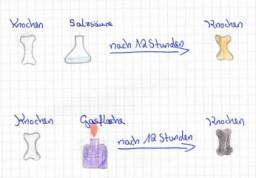 Knochen Salzsäure Knochen
nach 12 Stunden
Knochen Gasflasche Knochen
nach 12 Stunden